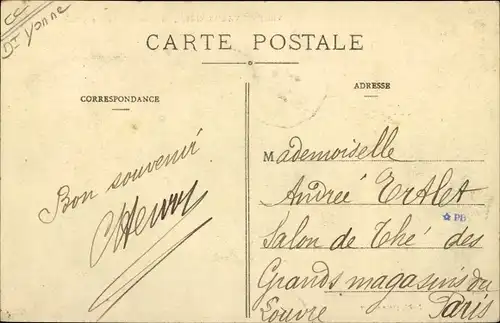 CC
Dt Yonne
CARTE POSTALE
CORRESPONDANCE
ADRESSE
Bon souvenir
CHenry
Mademoiselle
Andreé Ertlet
PB
Salon de Thé des
Grands magasins du
Louvre Paris